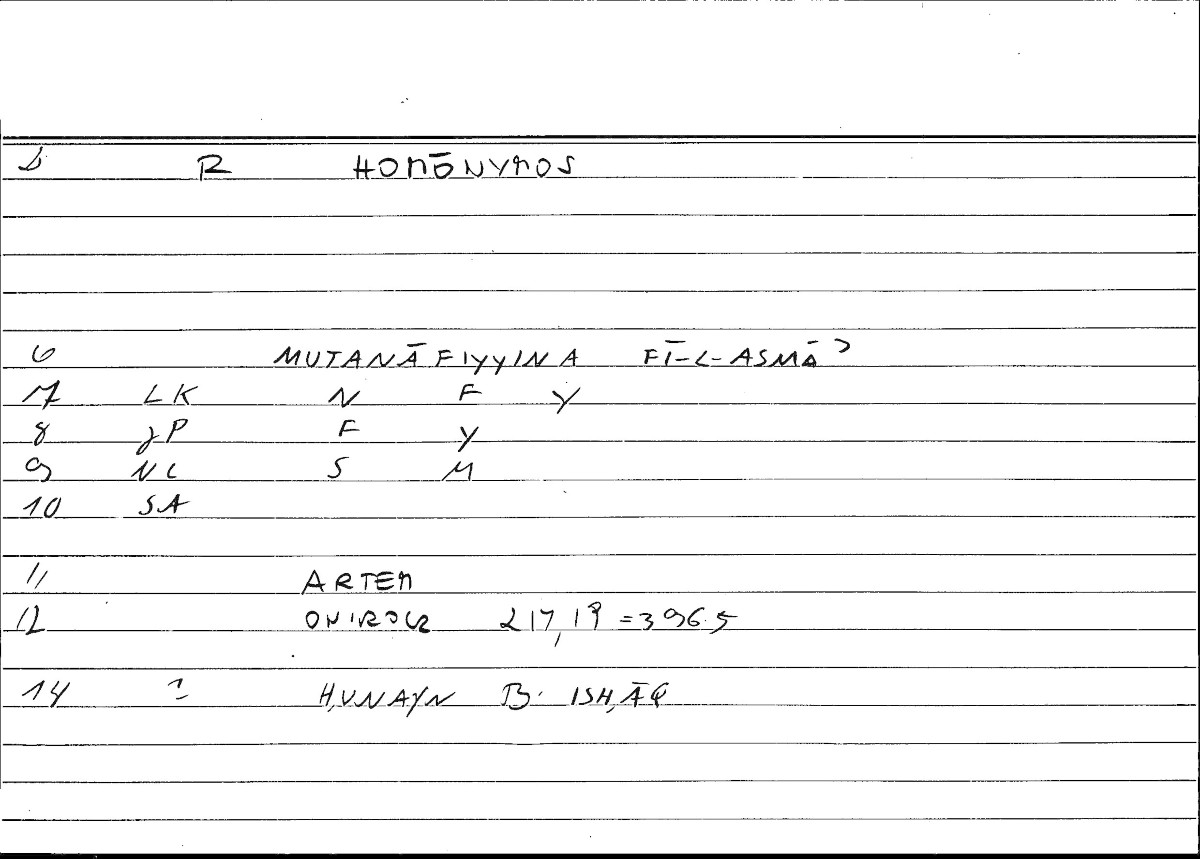 1 R HOMŌNYMOS
6 MUTANĀFIYYINA FĪ-L-ASMĀʾ
7 LK N F Y
8 JP F Y
9 NC S M
10 SA
11 ARTEM
12 ONIROCR 217,19 = 396.5
14 1 H,UNAYN B. ISH,ĀQ